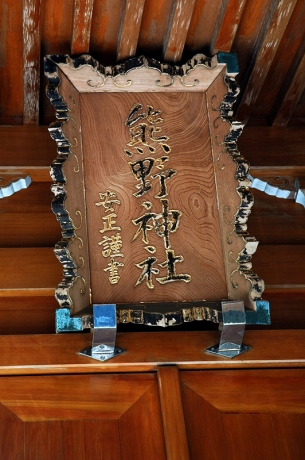 熊野神社
安正謹書